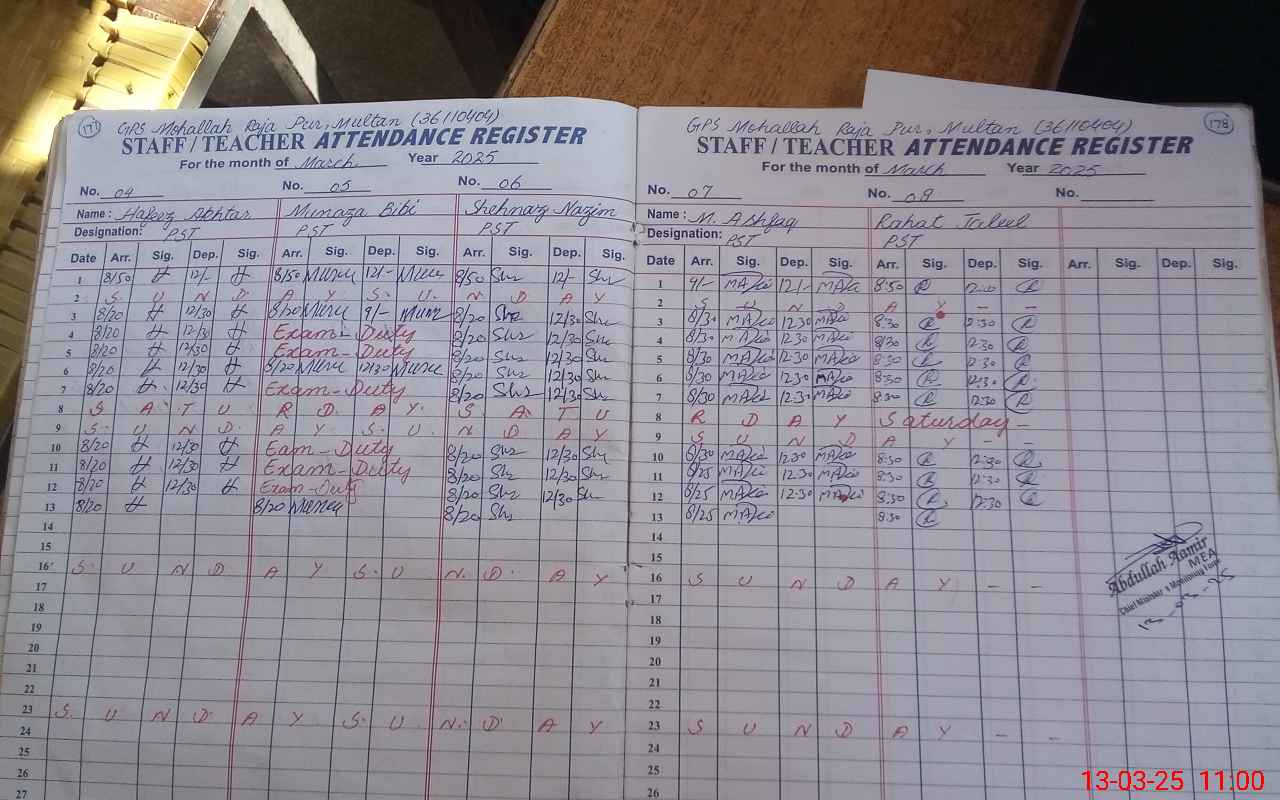 171
GPS Mohallah Raja Pur, Multan (36110404)
STAFF / TEACHER ATTENDANCE REGISTER
For the month of March Year 2025
No. 04 No. 05 No. 06
Name : Hafeez Akhtar Munaza Bibi Shehnaz Nazim
Designation: PST PST PST
Date Arr. Sig. Dep. Sig. Arr. Sig. Dep. Sig. Arr. Sig. Dep. Sig.
1 8/50 12/- 8/50 12/- 8/50 12/-
2 S U N D A Y S U N D A Y
3 8/20 12/30 8/20 9/- 8/20 12/30
4 8/20 12/30 Exam-Duty 8/20 12/30
5 8/20 12/30 Exam-Duty 8/20 12/30
6 8/20 12/30 8/20 12/30 8/20 12/30
7 8/20 12/30 Exam-Duty 8/20 12/30
8 S A T U R D A Y S A T U
9 S U N D A Y S U N D A Y
10 8/20 12/30 Eam-Duty 8/20 12/30
11 8/20 12/30 Exam-Duty 8/20 12/30
12 8/20 12/30 Exam-Duty 8/20 12/30
13 8/20 8/20 8/20
14
15
16 S U N D A Y S U N D A Y
17
18
19
20
21
22
23 S U N D A Y S U N D A Y
24
25
26
27
178
GPS Mohallah Raja Pur, Multan (36110404)
STAFF / TEACHER ATTENDANCE REGISTER
For the month of March Year 2025
No. 07 No. 08 No.
Name : M. Ashfaq Rahat Jaleel
Designation: PST PST
Date Arr. Sig. Dep. Sig. Arr. Sig. Dep. Sig. Arr. Sig. Dep. Sig.
1 9/- 12/- 8:50 12:00
2 S U N D A Y - -
3 8/30 12:30 8:30 12:30
4 8/30 12:30 8:30 12:30
5 8/30 12:30 8:30 12:30
6 8/30 12:30 8:30 12:30
7 8/30 12:30 8:30 12:30
8 R D A Y Saturday -
9 S U N D A Y - -
10 8/30 12:30 8:30 12:30
11 8/25 12:30 8:30 12:30
12 8/25 12:30 8:30 12:30
13 8/25 8:30
14
15
16 S U N D A Y - -
17
18
19
20
21
22
23 S U N D A Y - -
24
25
26
Abdullah Aamir
MEA
Chief Minister's Monitoring Force
13-03-25 11:00